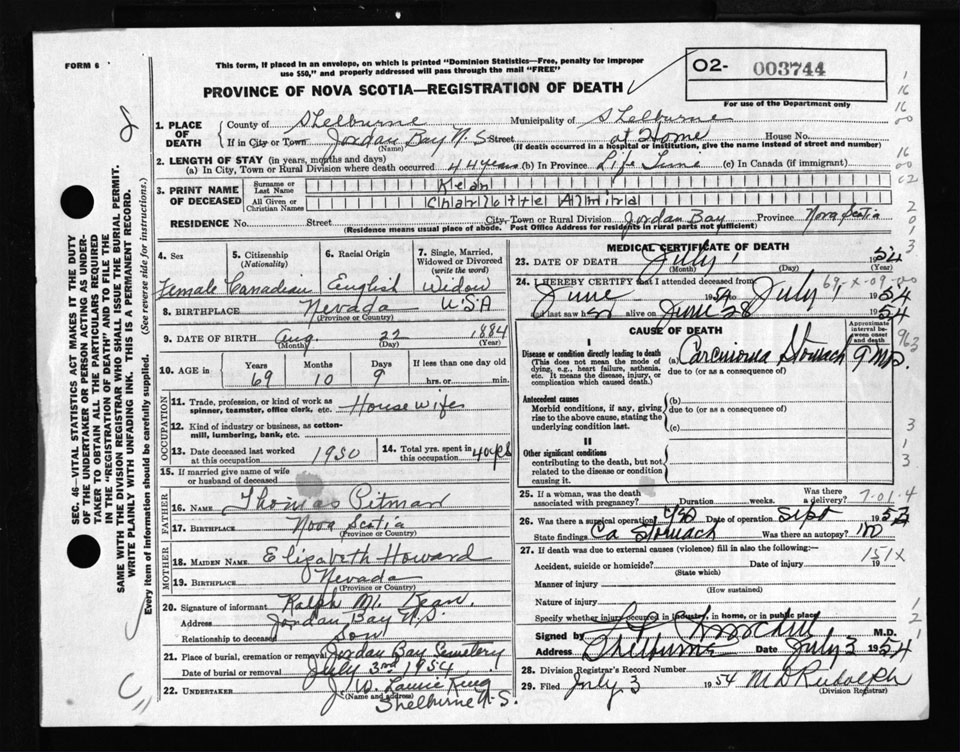 FORM 6
This form, if placed in an envelope, on which is printed "Dominion Statistics—Free, penalty for improper
use $50," and properly addressed will pass through the mail "FREE"
PROVINCE OF NOVA SCOTIA—REGISTRATION OF DEATH
02- 003744
For use of the Department only
SEC. 46—VITAL STATISTICS ACT MAKES IT THE DUTY
OF THE UNDERTAKER OR PERSON ACTING AS UNDER-
TAKER TO OBTAIN ALL THE PARTICULARS REQUIRED
IN THE "REGISTRATION OF DEATH" AND TO FILE THE
SAME WITH THE DIVISION REGISTRAR WHO SHALL ISSUE THE BURIAL PERMIT.
WRITE PLAINLY WITH UNFADING INK. THIS IS A PERMANENT RECORD.
Every item of information should be carefully supplied. (See reverse side for instructions.)
1. PLACE OF DEATH
County of Shelburne Municipality of Shelburne
If in City or Town Jordan Bay N.S. Street at Home House No.
(Name) (If death occurred in a hospital or institution, give the name instead of street and number)
2. LENGTH OF STAY (in years, months and days)
(a) In City, Town or Rural Division where death occurred 44 years (b) In Province Life Time (c) In Canada (if immigrant)
3. PRINT NAME OF DECEASED
Surname or Last Name Kean
All Given or Christian Names Charlotte Almira
RESIDENCE No. Street City, Town or Rural Division Jordan Bay Province Nova Scotia
(Residence means usual place of abode. Post Office Address for residents in rural parts not sufficient)
4. Sex Female
5. Citizenship (Nationality) Canadian
6. Racial Origin English
7. Single, Married, Widowed or Divorced (write the word) Widow
8. BIRTHPLACE Nevada USA
(Province or Country)
9. DATE OF BIRTH Aug. 22 1884
(Month) (Day) (Year)
10. AGE in Years 69 Months 10 Days 9 If less than one day old hrs. or min.
OCCUPATION
11. Trade, profession, or kind of work as spinner, teamster, office clerk, etc. House wife
12. Kind of industry or business, as cotton-mill, lumbering, bank, etc.
13. Date deceased last worked at this occupation 1950
14. Total yrs. spent in this occupation 40 yrs
15. If married give name of wife or husband of deceased
FATHER
16. Name Thomas Pitman
17. Birthplace Nova Scotia
(Province or Country)
MOTHER
18. MAIDEN NAME Elizabeth Howard
19. Birthplace Nevada
(Province or Country)
20. Signature of informant Ralph M. Kean.
Address Jordan Bay N.S.
Relationship to deceased Son
21. Place of burial, cremation or removal Jordan Bay Semetery
Date of burial or removal July 3rd 1954
22. UNDERTAKER J. W. Laurie King
(Name and address)
Shelburne N.S.
MEDICAL CERTIFICATE OF DEATH
23. DATE OF DEATH July 1 1954
(Month) (Day) (Year)
24. I HEREBY CERTIFY that I attended deceased from
June 1954 to July 1954
I last saw h alive on June 28 1954
CAUSE OF DEATH
Approximate interval between onset and death
I
Disease or condition directly leading to death
(This does not mean the mode of dying, e.g., heart failure, asthenia, etc. It means the disease, injury, or complication which caused death.)
(a) Carcinoma Stomach 9 Mos.
due to (or as a consequence of)
Antecedent causes
Morbid conditions, if any, giving rise to the above cause, stating the underlying condition last.
(b)
due to (or as a consequence of)
(c)
II
Other significant conditions
contributing to the death, but not related to the disease or condition causing it.
25. If a woman, was the death associated with pregnancy? Duration weeks. Was there a delivery? 7-01-4
26. Was there a surgical operation? yes Date of operation Sept 1953
State findings Ca Stomach Was there an autopsy? no
27. If death was due to external causes (violence) fill in also the following:—
Accident, suicide or homicide? Date of injury 19
(State which)
151X
Manner of injury
(How sustained)
Nature of injury
Specify whether injury occurred in industry, in home, or in public place
Signed by M.D.
Address Shelburne Date July 3 1954
28. Division Registrar's Record Number
29. Filed July 3 1954 M D Rudolph
(Division Registrar)